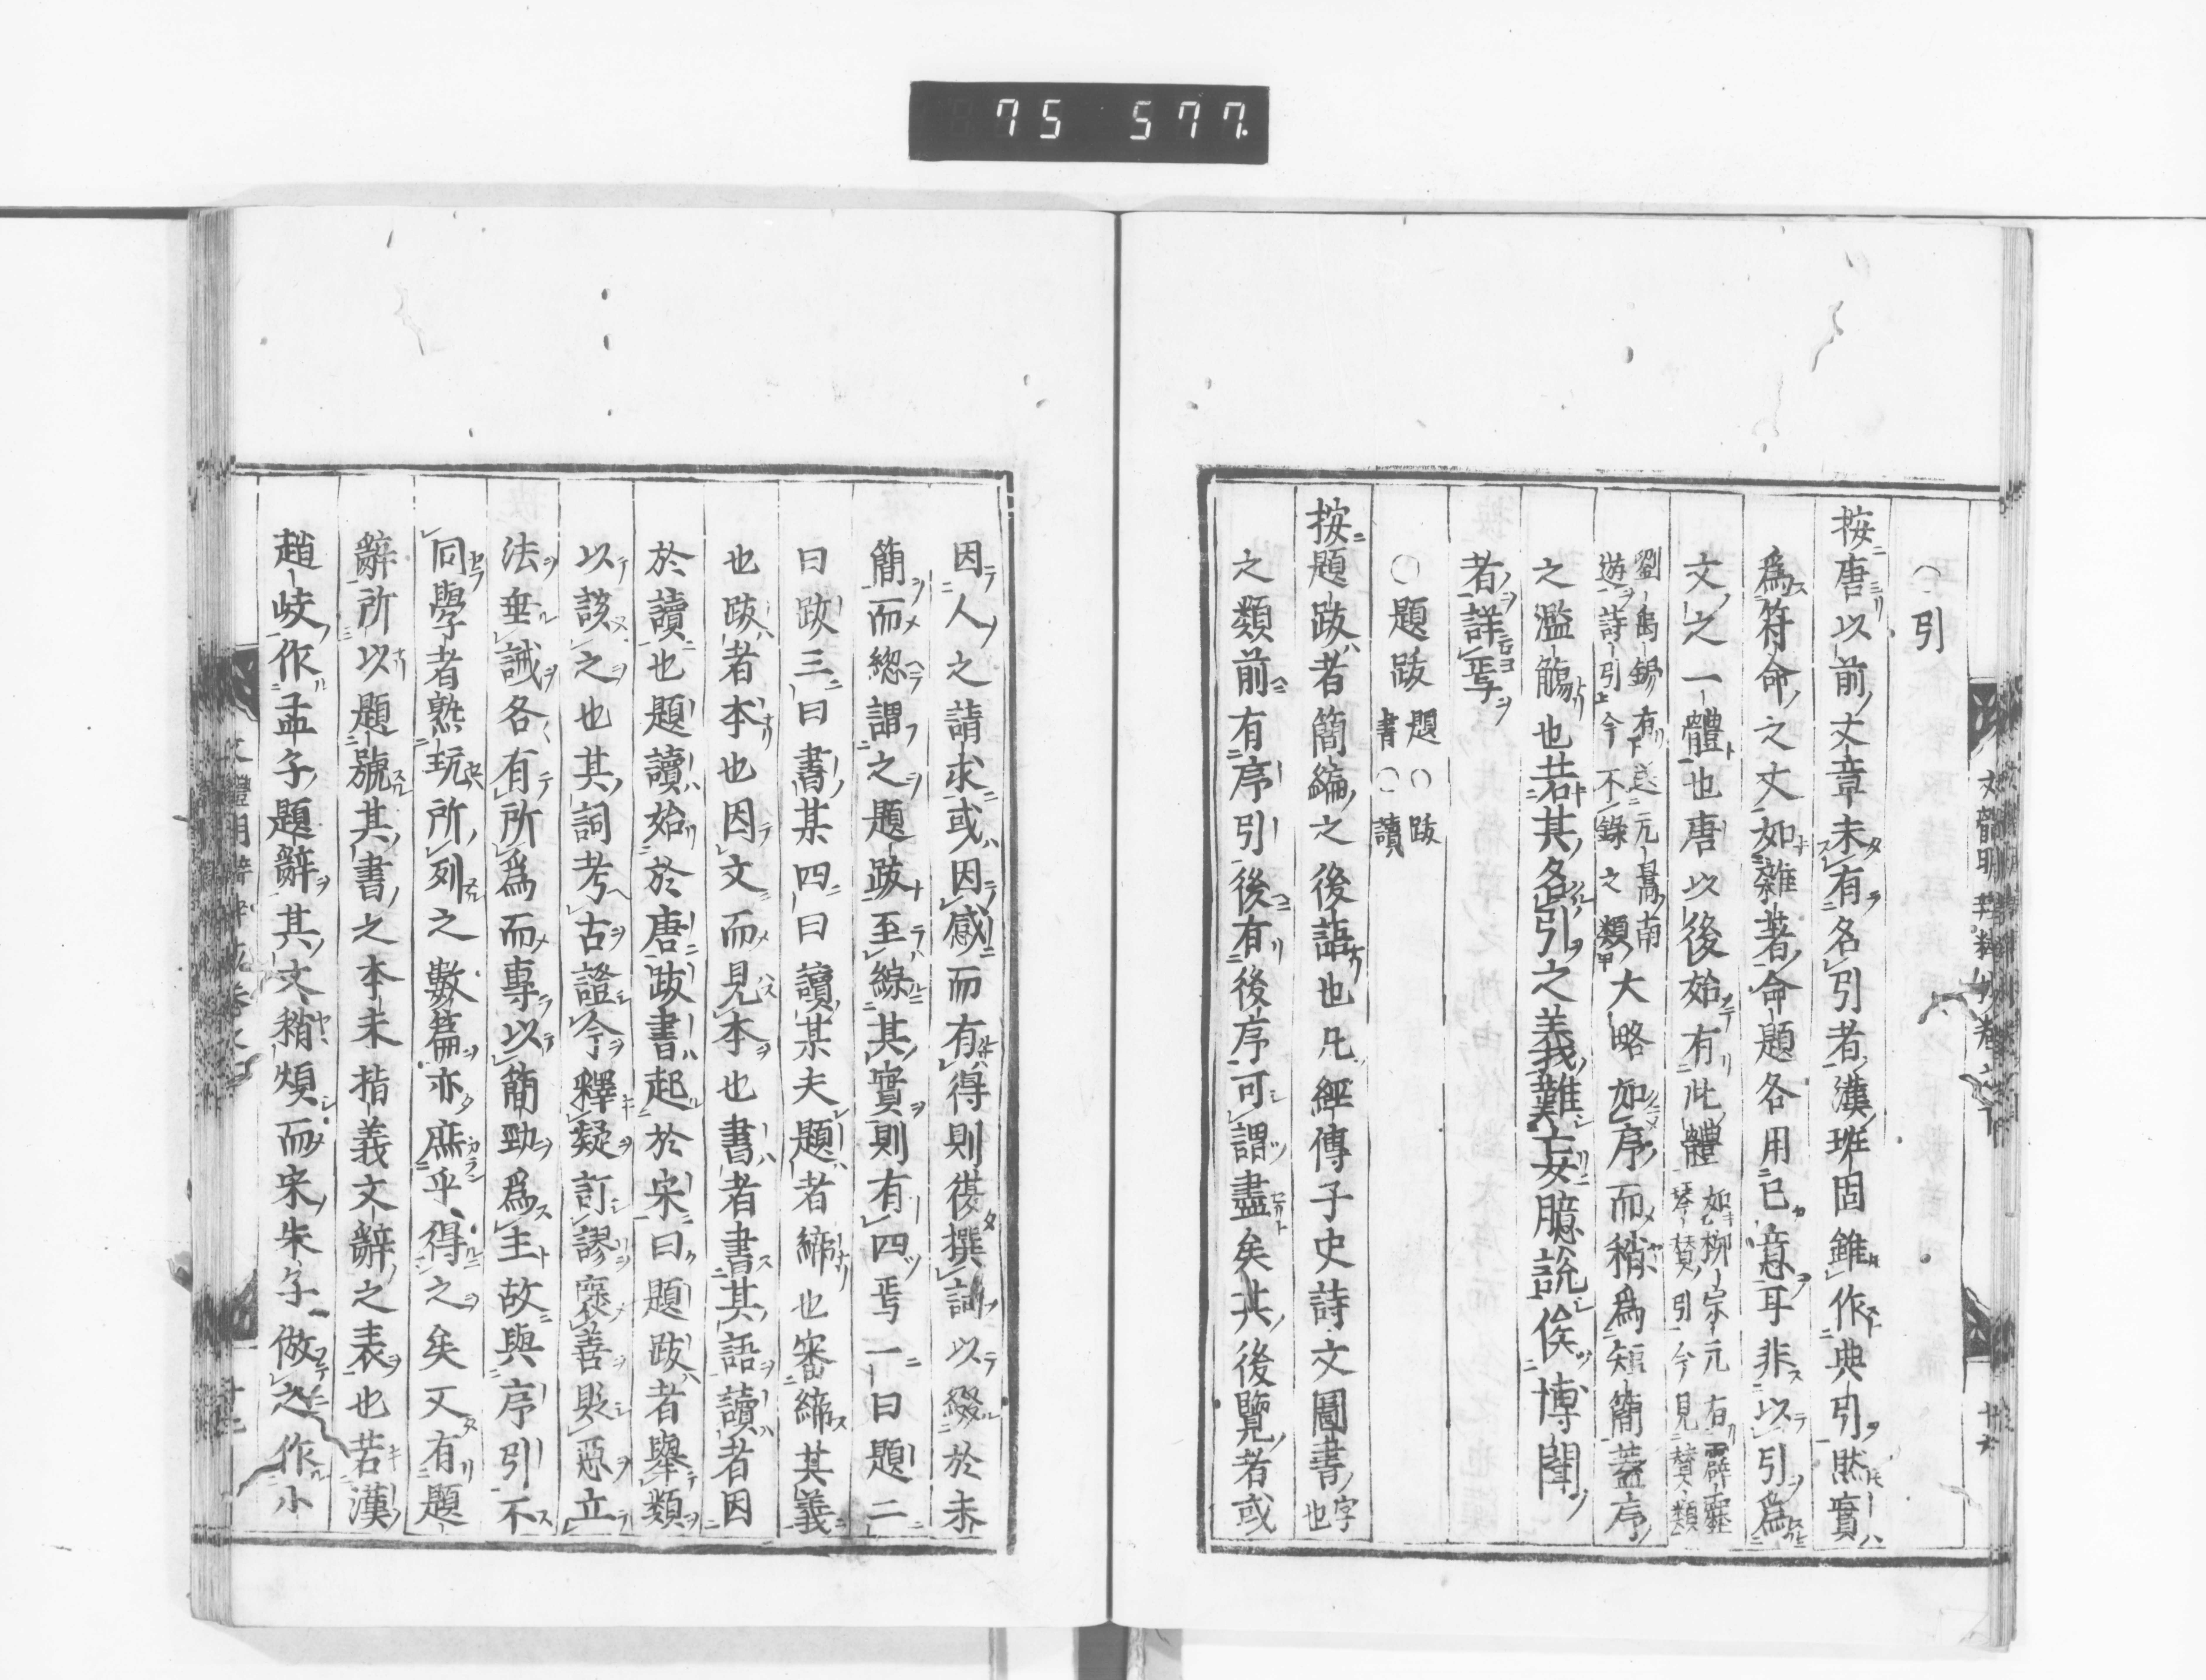 75 577.
○引
按唐以前文章未有名引者漢班固雖作典引然實
爲符命之文如雜著命題各用己意耳非以引爲
文之一體也唐以後始有此體如柳宗元有霹靂琴賛引今見賛類
劉禹錫有送元暠南遊詩引今不錄之類大略如序而稍爲短簡蓋序
之濫觴也若其名引之義難妄臆說俟博聞
者詳焉
○題跋題○跋書○讀
按題跋者簡編之後語也凡經傳子史詩文圖書字也
之類前有序引後有後序可謂盡矣其後覽者或
因人之請求或因感而有得則復撰詞以綴於末
簡而緫謂之題跋至綜其實則有四焉一曰題二
曰跋三曰書某四曰讀某夫題者締也審締其義
也跋者本也因文而見本也書者書其語讀者因
於讀也題讀始於唐跋書起於宋曰題跋者舉類
以該之也其詞考古證今釋疑訂謬褒善貶惡立
法垂誡各有所爲而專以簡勁爲主故與序引不
同學者熟玩所列之數篇亦庶乎得之矣又有題
辭所以題號其書之本末指義文辭之表也若漢
趙岐作孟子題辭其文稍煩而宋朱子倣之作小